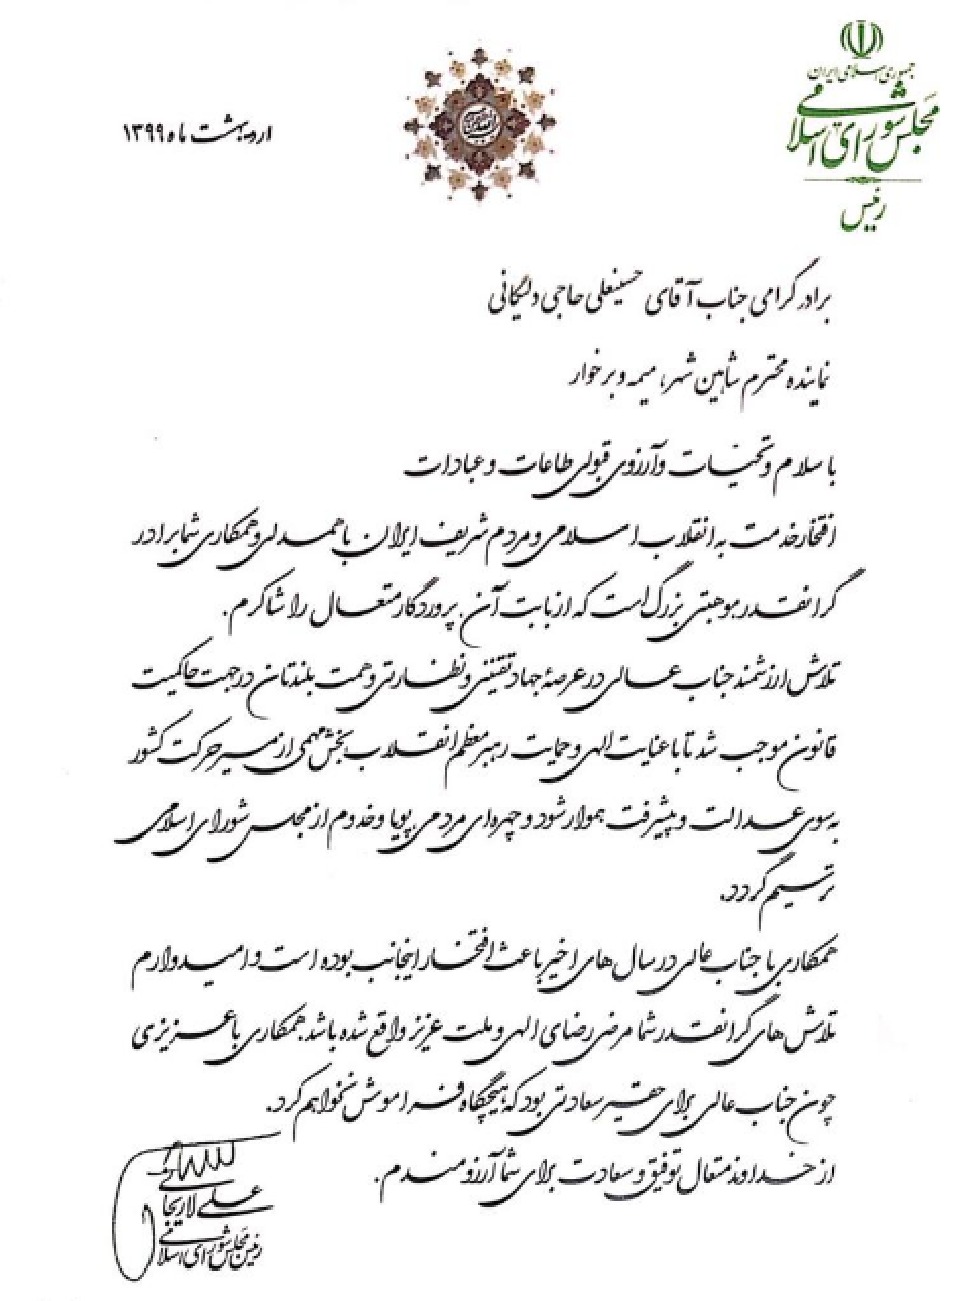 جمهوری اسلامی ایران
مجلس شورای اسلامی
رئیس
اردیبهشت ماه ۱۳۹۹
برادر گرامی جناب آقای حسینعلی حاجی دلیگانی
نماینده محترم شاهین شهر، میمه و برخوار
با سلام و تحیّات و آرزوی قبولی طاعات و عبادات
افتخار خدمت به انقلاب اسلامی و مردم شریف ایران با همدلی و همکاری شما برادر
گرانقدر موهبتی بزرگ است که از بابت آن، پروردگار متعال را شاکرم.
تلاش ارزشمند جناب عالی در عرصهٔ جهاد تقنینی و نظارتی و همت بلندتان در جهت حاکمیت
قانون موجب شد تا با عنایت الهی و حمایت رهبر معظم انقلاب بخش مهمی از مسیر حرکت کشور
به سوی عدالت و پیشرفت هموار شود و چهره‌ای مردمی، پویا و خدوم از مجلس شورای اسلامی
ترسیم گردد.
همکاری با جناب عالی در سال های اخیر باعث افتخار اینجانب بوده است و امیدوارم
تلاش های گرانقدر شما مرضی رضای الهی و ملت عزیز واقع شده باشد. همکاری با عزیزی
چون جناب عالی برای حقیر سعادتی بود که هیچگاه فراموش نخواهم کرد.
از خداوند متعال توفیق و سعادت برای شما آرزومندم.
علی لاریجانی
رئیس مجلس شورای اسلامی